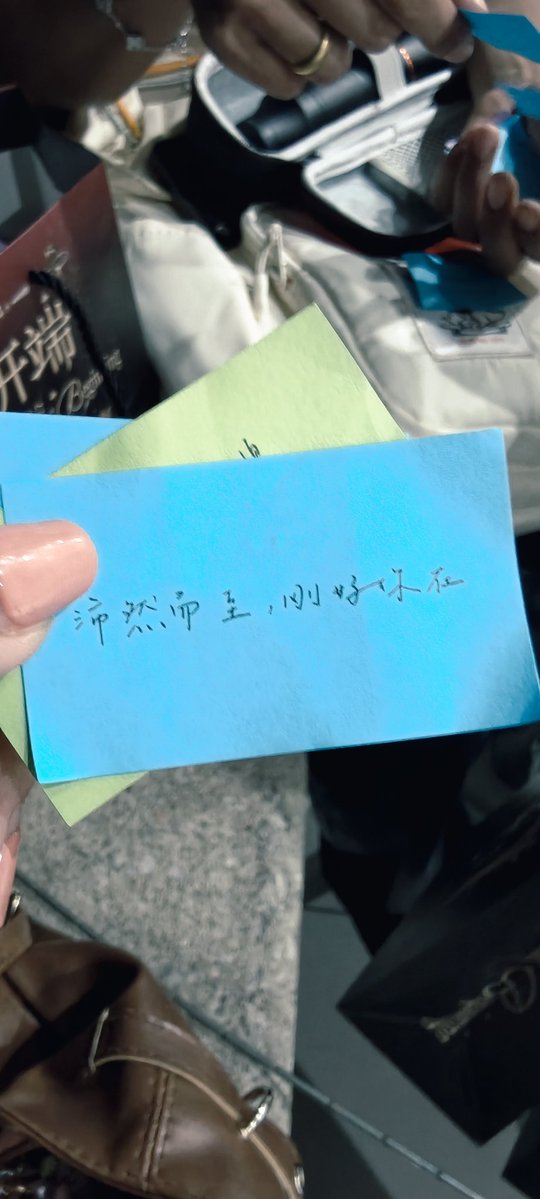 开端
Beginning
沛然而至，刚好你在